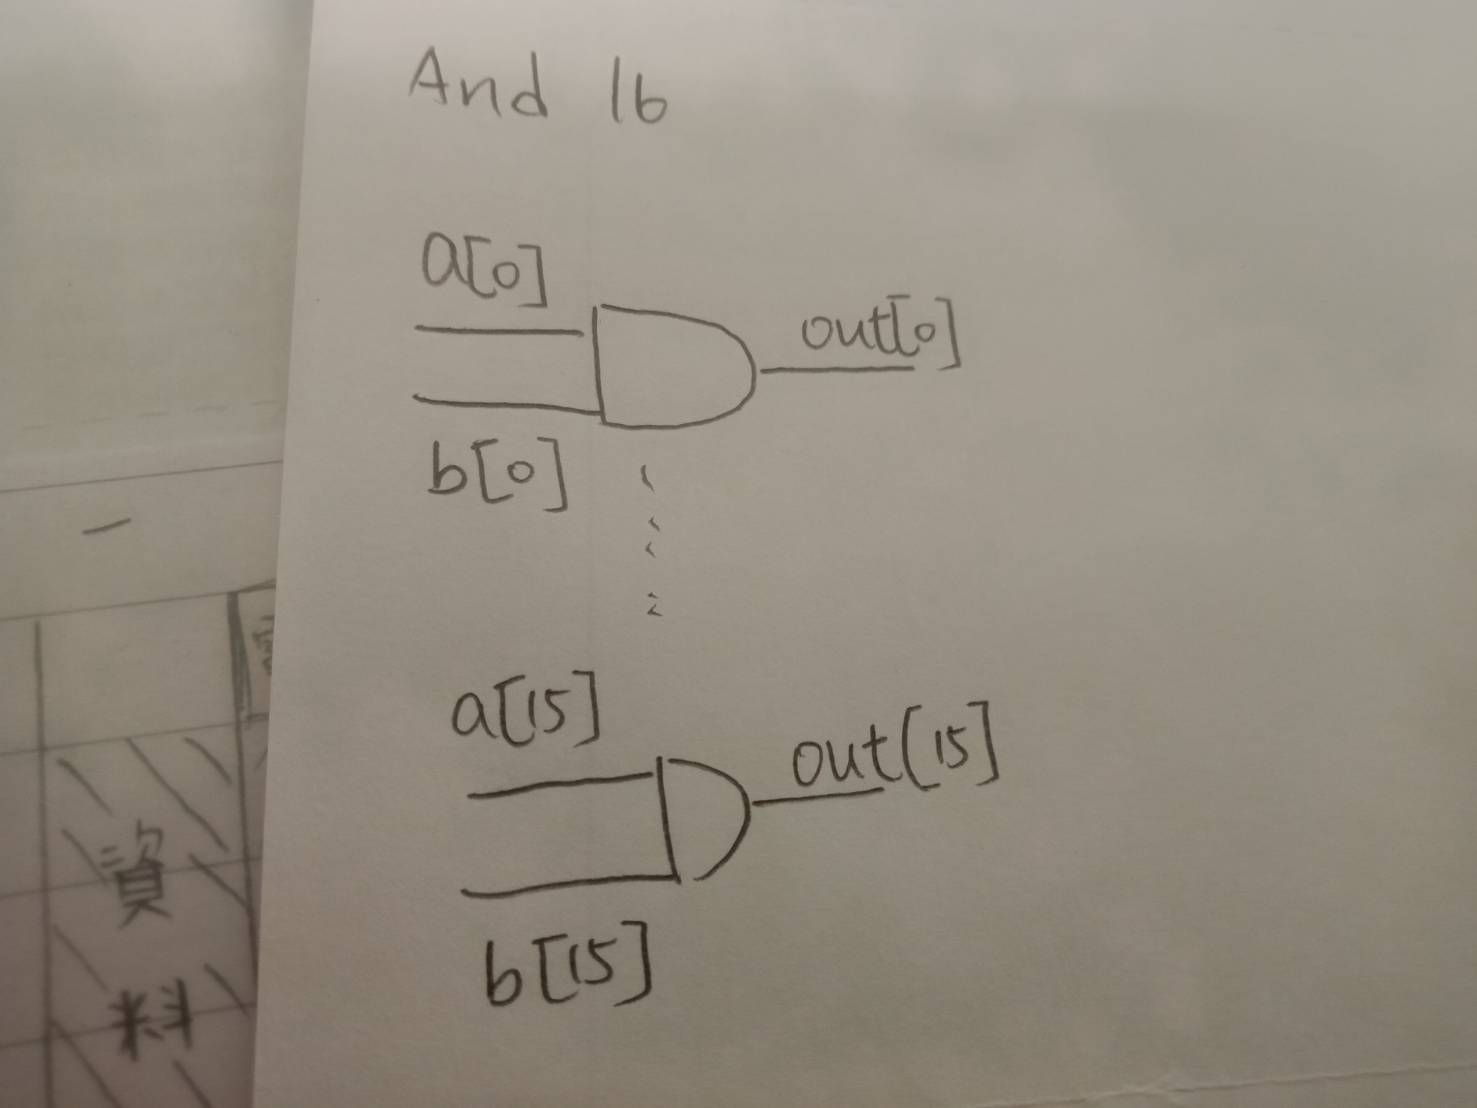 And 16
a[0]
out[0]
b[0]
a[15]
out[15]
b[15]
一
資
料